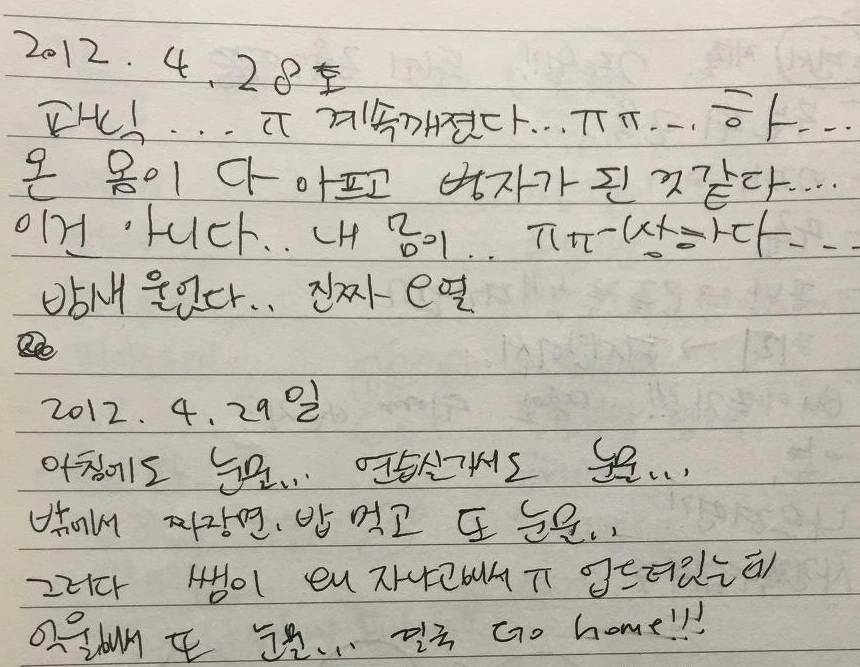 2012. 4. 28 토
패닉.... ㅠ 계속깨졌다...ㅠㅠ.... 하....
온 몸이 다 아프고 병자가 된 것같다....
이건 아니다.. 내 몸이.. ㅠㅠ 상하다....
밤새 울었다.. 진짜 오열
2012. 4. 29 일
아침에도 눈물... 연습실가서도 눈물...
밖에서 짜장면.밥 먹고 또 눈물..
그러다 쌤이 왜 자냐고해서 ㅠ 업드려있는데
억울해서 또 눈물... 결국 Go home!!!